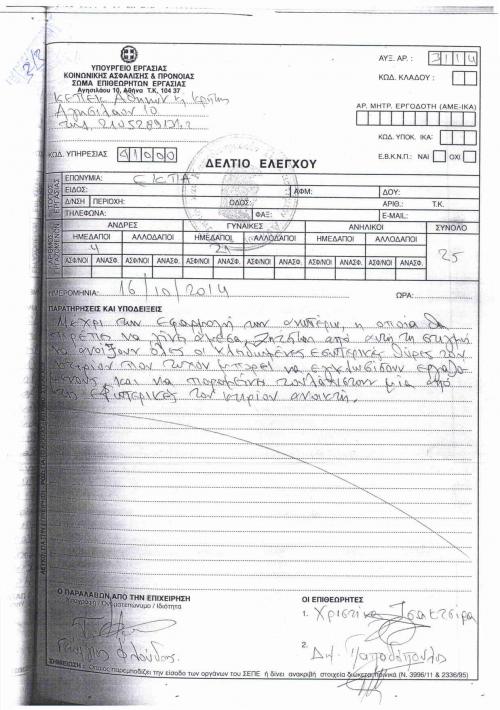 ΥΠΟΥΡΓΕΙΟ ΕΡΓΑΣΙΑΣ
ΚΟΙΝΩΝΙΚΗΣ ΑΣΦΑΛΙΣΗΣ & ΠΡΟΝΟΙΑΣ
ΣΩΜΑ ΕΠΙΘΕΩΡΗΤΩΝ ΕΡΓΑΣΙΑΣ
Αγησιλάου 10, Αθήνα Τ.Κ, 104 37
ΑΥΞ. ΑΡ. : 3114
ΚΩΔ. ΚΛΑΔΟΥ :
ΚΕΠΕΚ Αθηνών & Κρήτης
Αγησιλάου 10
ΑΡ. ΜΗΤΡ. ΕΡΓΟΔΟΤΗ (ΑΜΕ-ΙΚΑ)
ΚΩΔ. ΥΠΟΚ. ΙΚΑ:
ΚΩΔ. ΥΠΗΡΕΣΙΑΣ 41000
ΔΕΛΤΙΟ ΕΛΕΓΧΟΥ
Ε.Β.Κ.Ν.Π.: ΝΑΙ ΟΧΙ
ΕΠΩΝΥΜΙΑ:
ΕΙΔΟΣ: ΑΦΜ: ΔΟΥ:
Δ/ΝΣΗ ΠΕΡΙΟΧΗ: ΟΔΟΣ: ΑΡΙΘ.: Τ.Κ.
ΤΗΛΕΦΩΝΑ: ΦΑΞ: E-MAIL:
ΑΝΔΡΕΣ ΓΥΝΑΙΚΕΣ ΑΝΗΛΙΚΟΙ ΣΥΝΟΛΟ
ΗΜΕΔΑΠΟΙ ΑΛΛΟΔΑΠΟΙ ΗΜΕΔΑΠΟΙ ΑΛΛΟΔΑΠΟΙ ΗΜΕΔΑΠΟΙ ΑΛΛΟΔΑΠΟΙ
4 21 25
ΑΣΦ/ΝΟΙ ΑΝΑΣΦ. ΑΣΦ/ΝΟΙ ΑΝΑΣΦ. ΑΣΦ/ΝΟΙ ΑΝΑΣΦ. ΑΣΦ/ΝΟΙ ΑΝΑΣΦ. ΑΣΦ/ΝΟΙ ΑΝΑΣΦ. ΑΣΦ/ΝΟΙ ΑΝΑΣΦ.
ΗΜΕΡΟΜΗΝΙΑ: 16/10/2014 ΩΡΑ:
ΠΑΡΑΤΗΡΗΣΕΙΣ ΚΑΙ ΥΠΟΔΕΙΞΕΙΣ
Μέχρι την εφαρμογή των ανωτέρω, η οποία θα
πρέπει να γίνει άμεσα, ζητείται από αυτή τη στιγμή
να ανοίξουν όλες οι κλειδωμένες εσωτερικές θύρες του
κτιρίου που τυχόν μπορεί να εγκλωβίσουν εργαζο-
μένους, και να παραμένει τουλάχιστον μία από
τις εξωτερικές του κτιρίου ανοικτή.
Ο ΠΑΡΑΛΑΒΩΝ ΑΠΟ ΤΗΝ ΕΠΙΧΕΙΡΗΣΗ
Υπογραφή / Ονοματεπώνυμο / Ιδιότητα
ΟΙ ΕΠΙΘΕΩΡΗΤΕΣ
1. Χριστίνα
2. Δημ. Παπαδόπουλος
ΣΗΜΕΙΩΣΗ : Όποιος παρεμποδίζει την είσοδο των οργάνων του ΣΕΠΕ ή δίνει ανακριβή στοιχεία διώκεται ποινικά (Ν. 3996/11 & 2336/95)